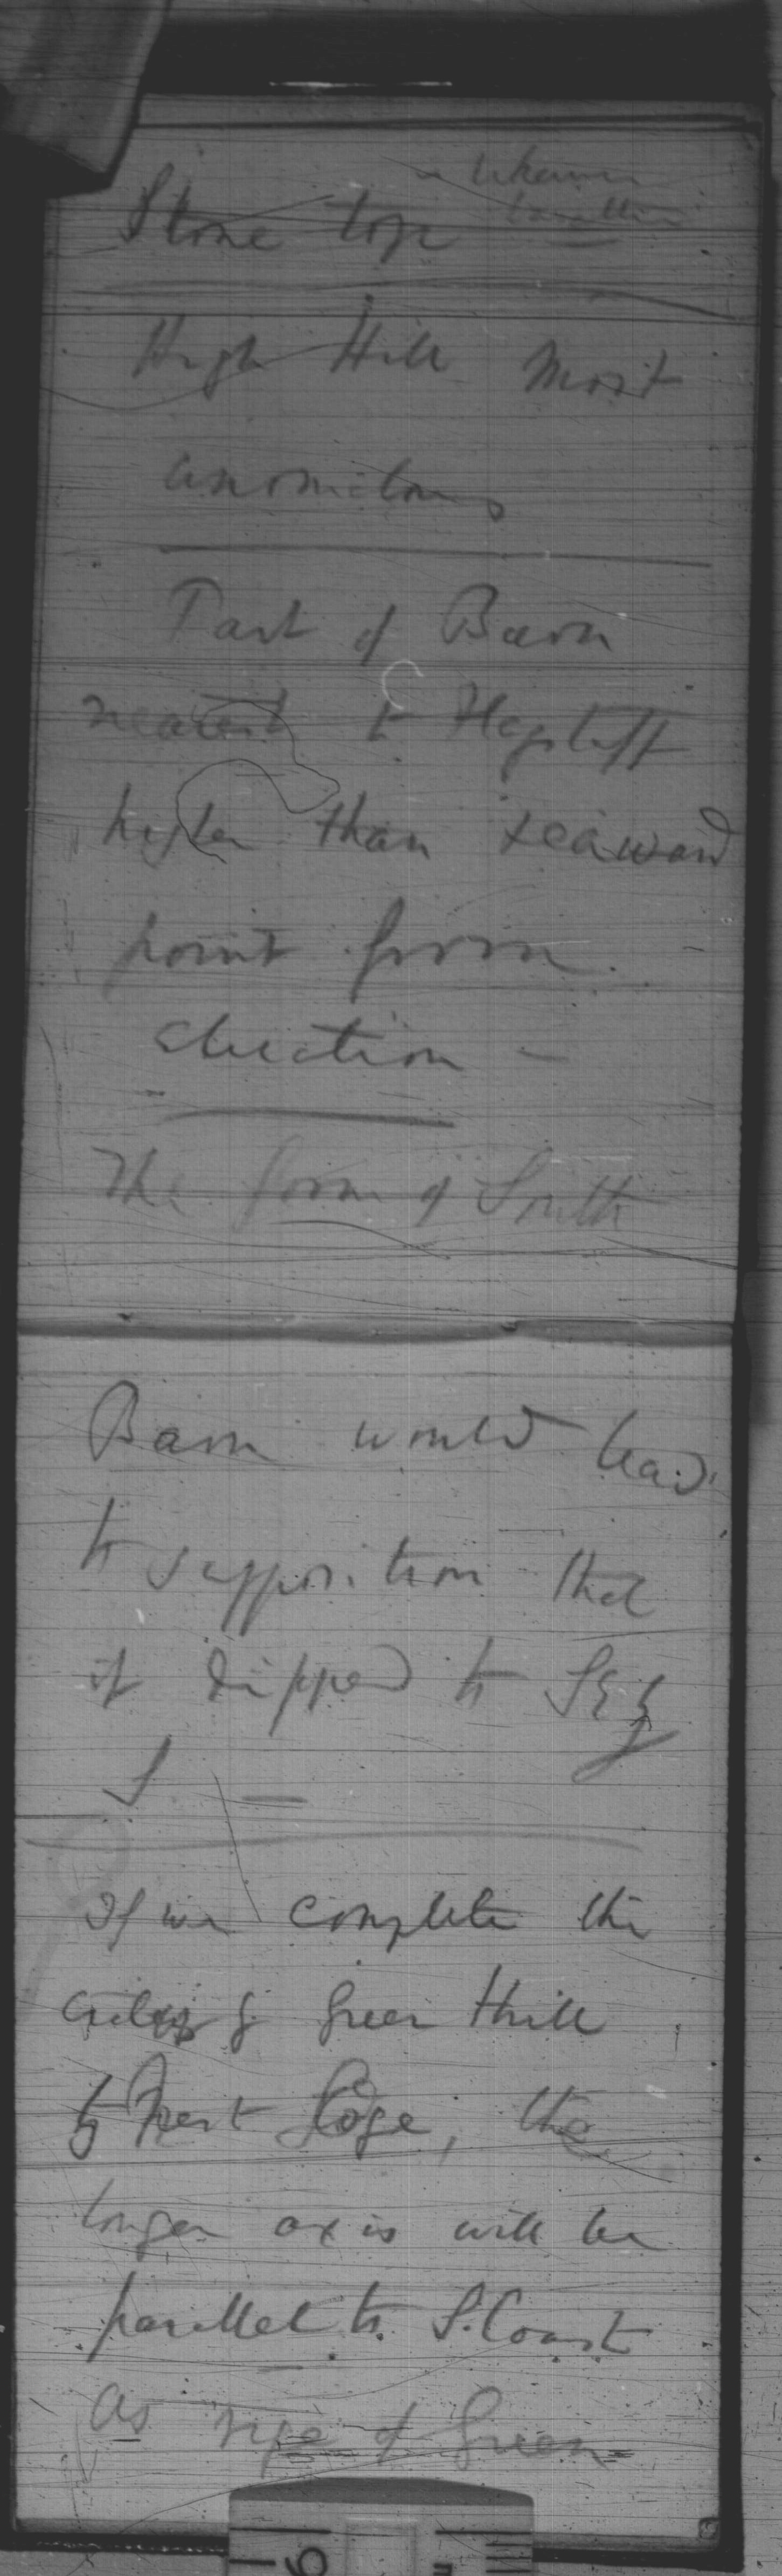 Stone top
High Hill most
anomalous
Part of Barn
nearest to Flagstaff
higher than seaward
point from
elevation –
The form of South
Barn would lead
to supposition that
it dipped to SE by
S —
If we complete the
of Green Hill
by Nest Lodge, the
longer axis will be
parallel to S. Coast
as ridge of Green